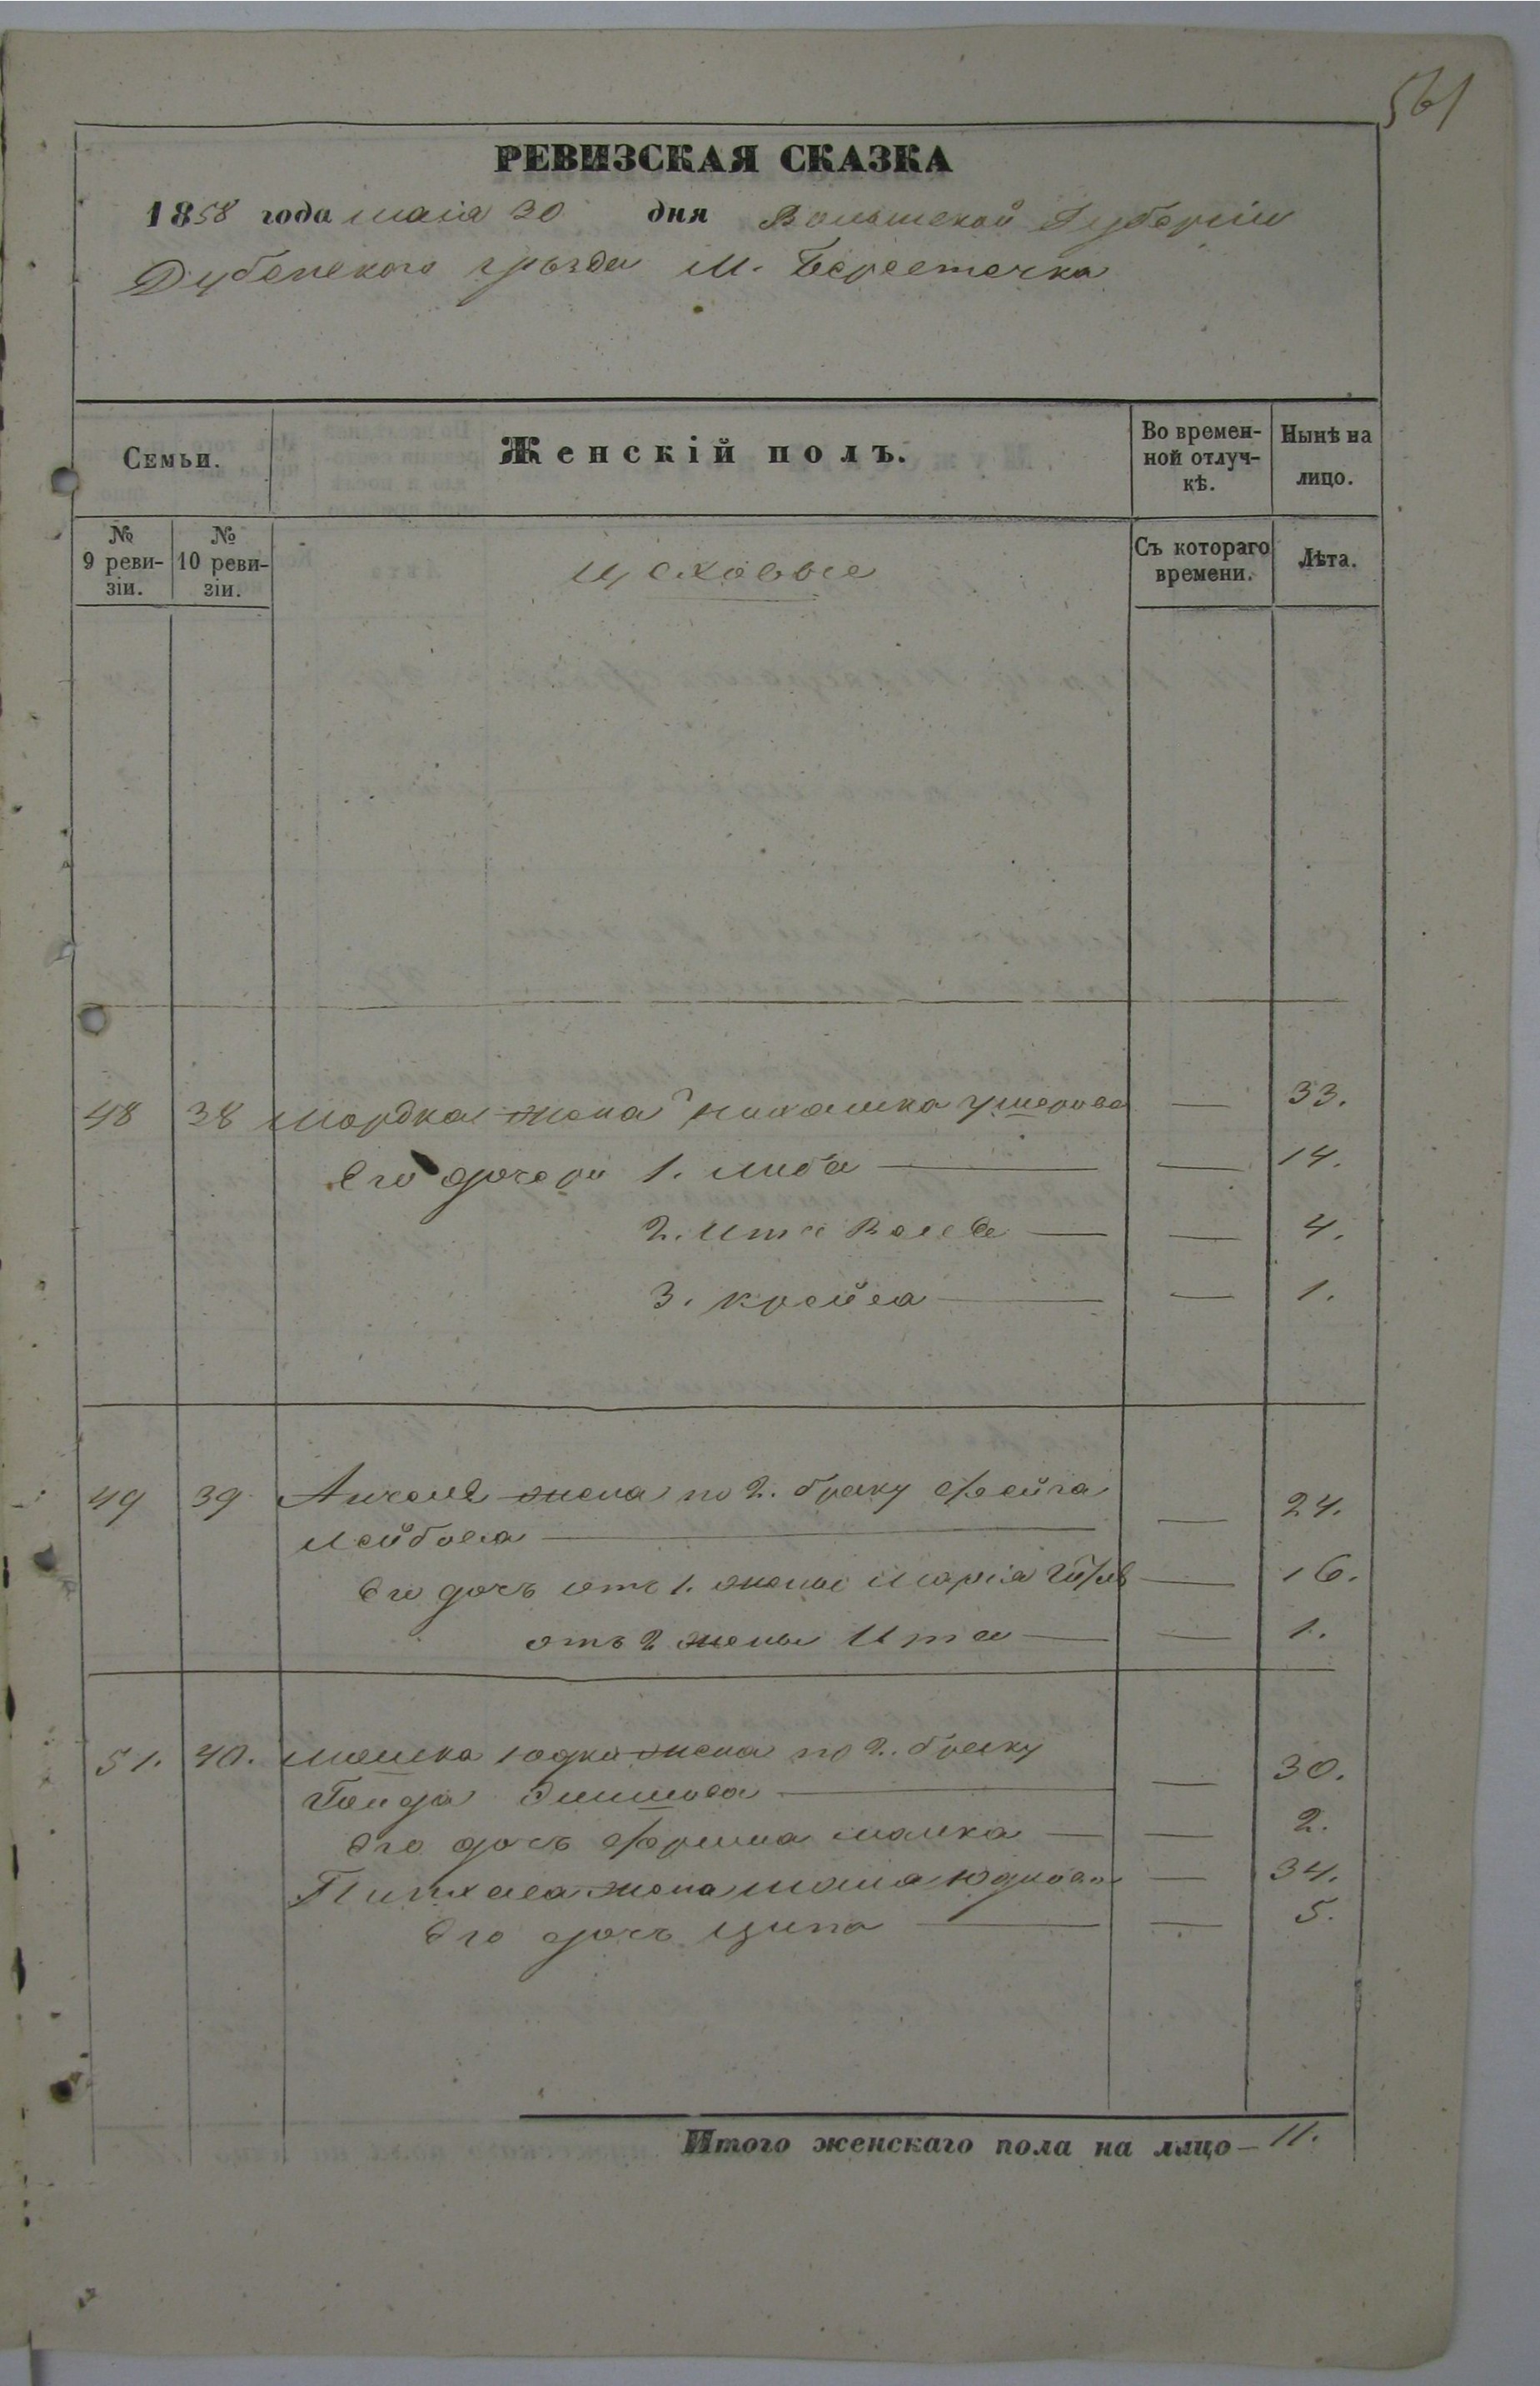 561
РЕВИЗСКАЯ СКАЗКА
1858 года маія 30 дня Волынской Губерніи
Дубенскаго уѣзда М. Берестечка
Семьи.
Женскій полъ.
Во времен-
ной отлуч-
кѣ.
Нынѣ на
лицо.
№
9 реви-
зіи.
№
10 реви-
зіи.
Цеховые
Съ котораго
времени.
Лѣта.
48 38 Мордка жена — 33.
Его дочери 1. Либа — — 14.
2. Ита — — 4.
3. Крейса — — 1.
49 39 жена по 2. браку Фейга
Лейбова — — 24.
Его дочь отъ 1. жены — 16.
отъ 2 жены Ита — — 1.
51. 40. Мошка Юдка жена по 2. браку
— — 30.
Его дочь Фрима Малка — — 2.
Пинхаса жена Юдкова — 34.
Его дочь Ципа — — 5.
Итого женскаго пола на лицо — 11.